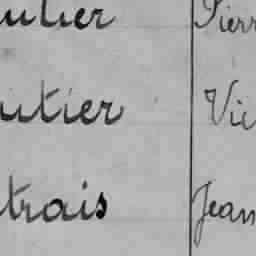 utier Pierr
utier Vic
trais Jean